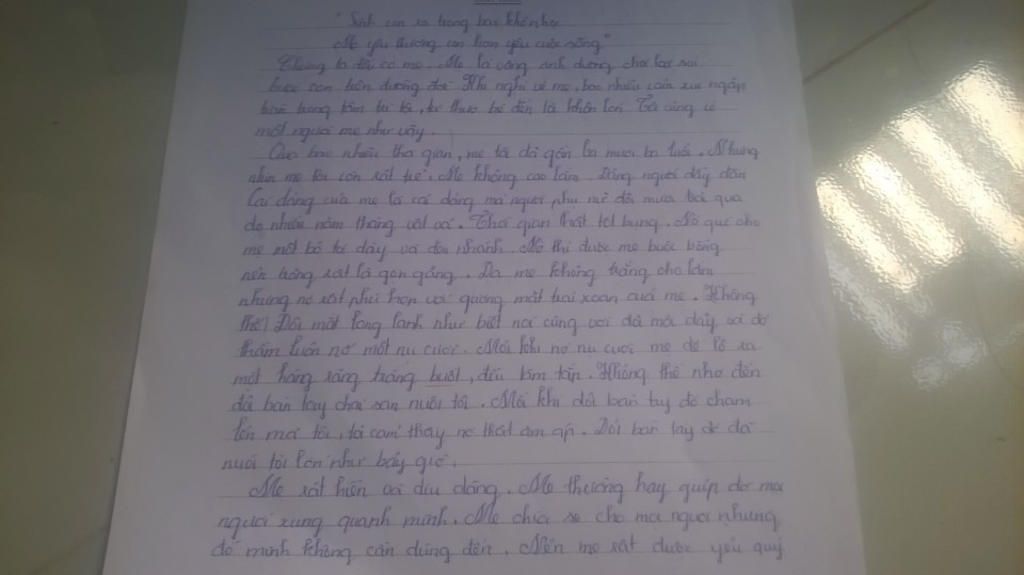 "Sinh con ra trong bao khó nhọc
Mẹ yêu thương con hơn yêu cuộc sống"
Chúng ta đều có mẹ. Mẹ là vầng ánh dương chói lọi soi
bước con trên đường đời. Khi nghĩ về mẹ, bao nhiêu cảm xúc ngập
tràn trong tâm trí tôi, từ thuở bé đến lúc khôn lớn. Tôi cũng có
một người mẹ như vậy.
Qua bao nhiêu thời gian, mẹ tôi đã gần ba mươi ba tuổi. Nhưng
nhìn mẹ tôi còn rất trẻ. Mẹ không cao lắm. Dáng người đầy đặn
Cái dáng của mẹ là cái dáng mà người phụ nữ đã mưa trải qua
do nhiều năm tháng vất vả. Thời gian thật tốt bụng. Nó quý cho
mẹ một bộ tóc dày và đen nhánh. Nó thì được mẹ buộc bổng
nên trông rất là gọn gàng. Da mẹ không trắng cho lắm
nhưng nó rất phù hợp với gương mặt trái xoan của mẹ. Không
thể! Đôi mắt long lanh như biết nói cùng với đôi môi dày và đỏ
thắm luôn nở một nụ cười. Mỗi khi nở nụ cười mẹ để lộ ra
một hàng răng trắng buốt, đều tăm tắp. Không thể nhớ đến
đôi bàn tay chai sạn nuôi tôi. Mỗi khi đôi bàn tay đó chạm
lên má tôi, tôi cảm thấy nó thật ấm áp. Đôi bàn tay đó đã
nuôi tôi lớn như bây giờ.
Mẹ rất hiền và dịu dàng. Mẹ thường hay giúp đỡ mọi
người xung quanh mình. Mẹ chia sẻ cho mọi người nhưng
đồ mình không cần dùng đến. Nên mẹ rất được yêu quý